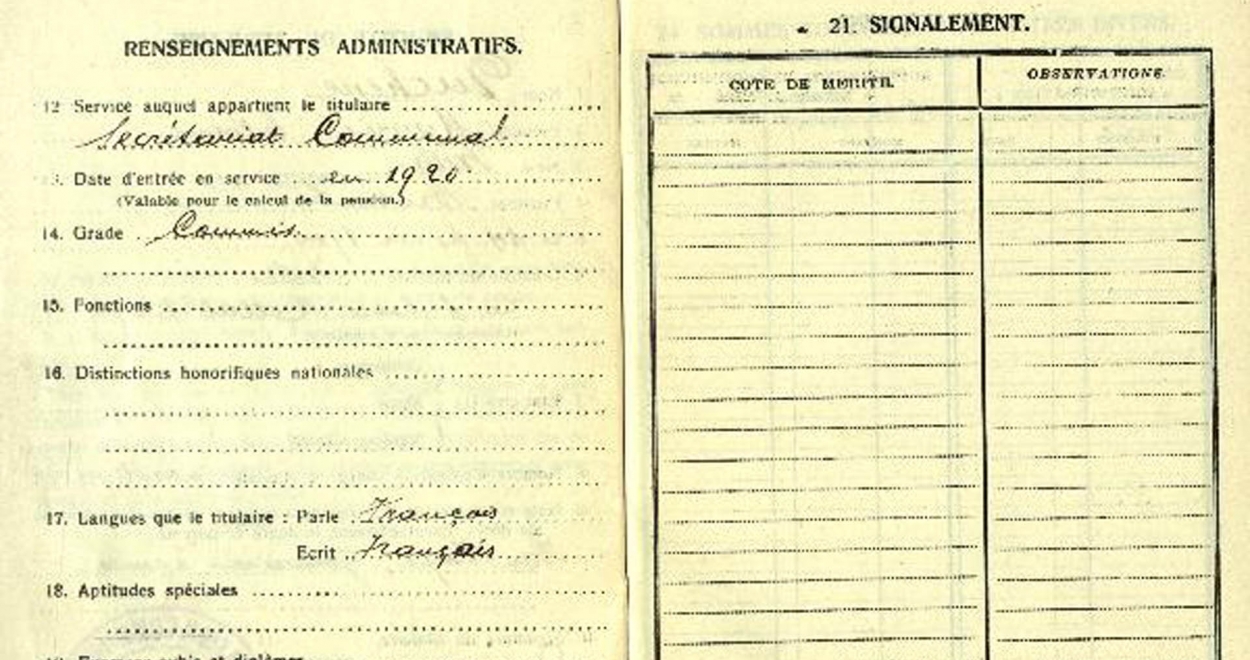 RENSEIGNEMENTS ADMINISTRATIFS.
12 Service auquel appartient le titulaire
Secrétariat Communal
13. Date d'entrée en service en 1920
(Valable pour le calcul de la pension.)
14. Grade Commis
15. Fonctions
16. Distinctions honorifiques nationales
17. Langues que le titulaire : Parle Français
Ecrit Français
18. Aptitudes spéciales
21. SIGNALEMENT.
COTE DE MERITE.
OBSERVATIONS